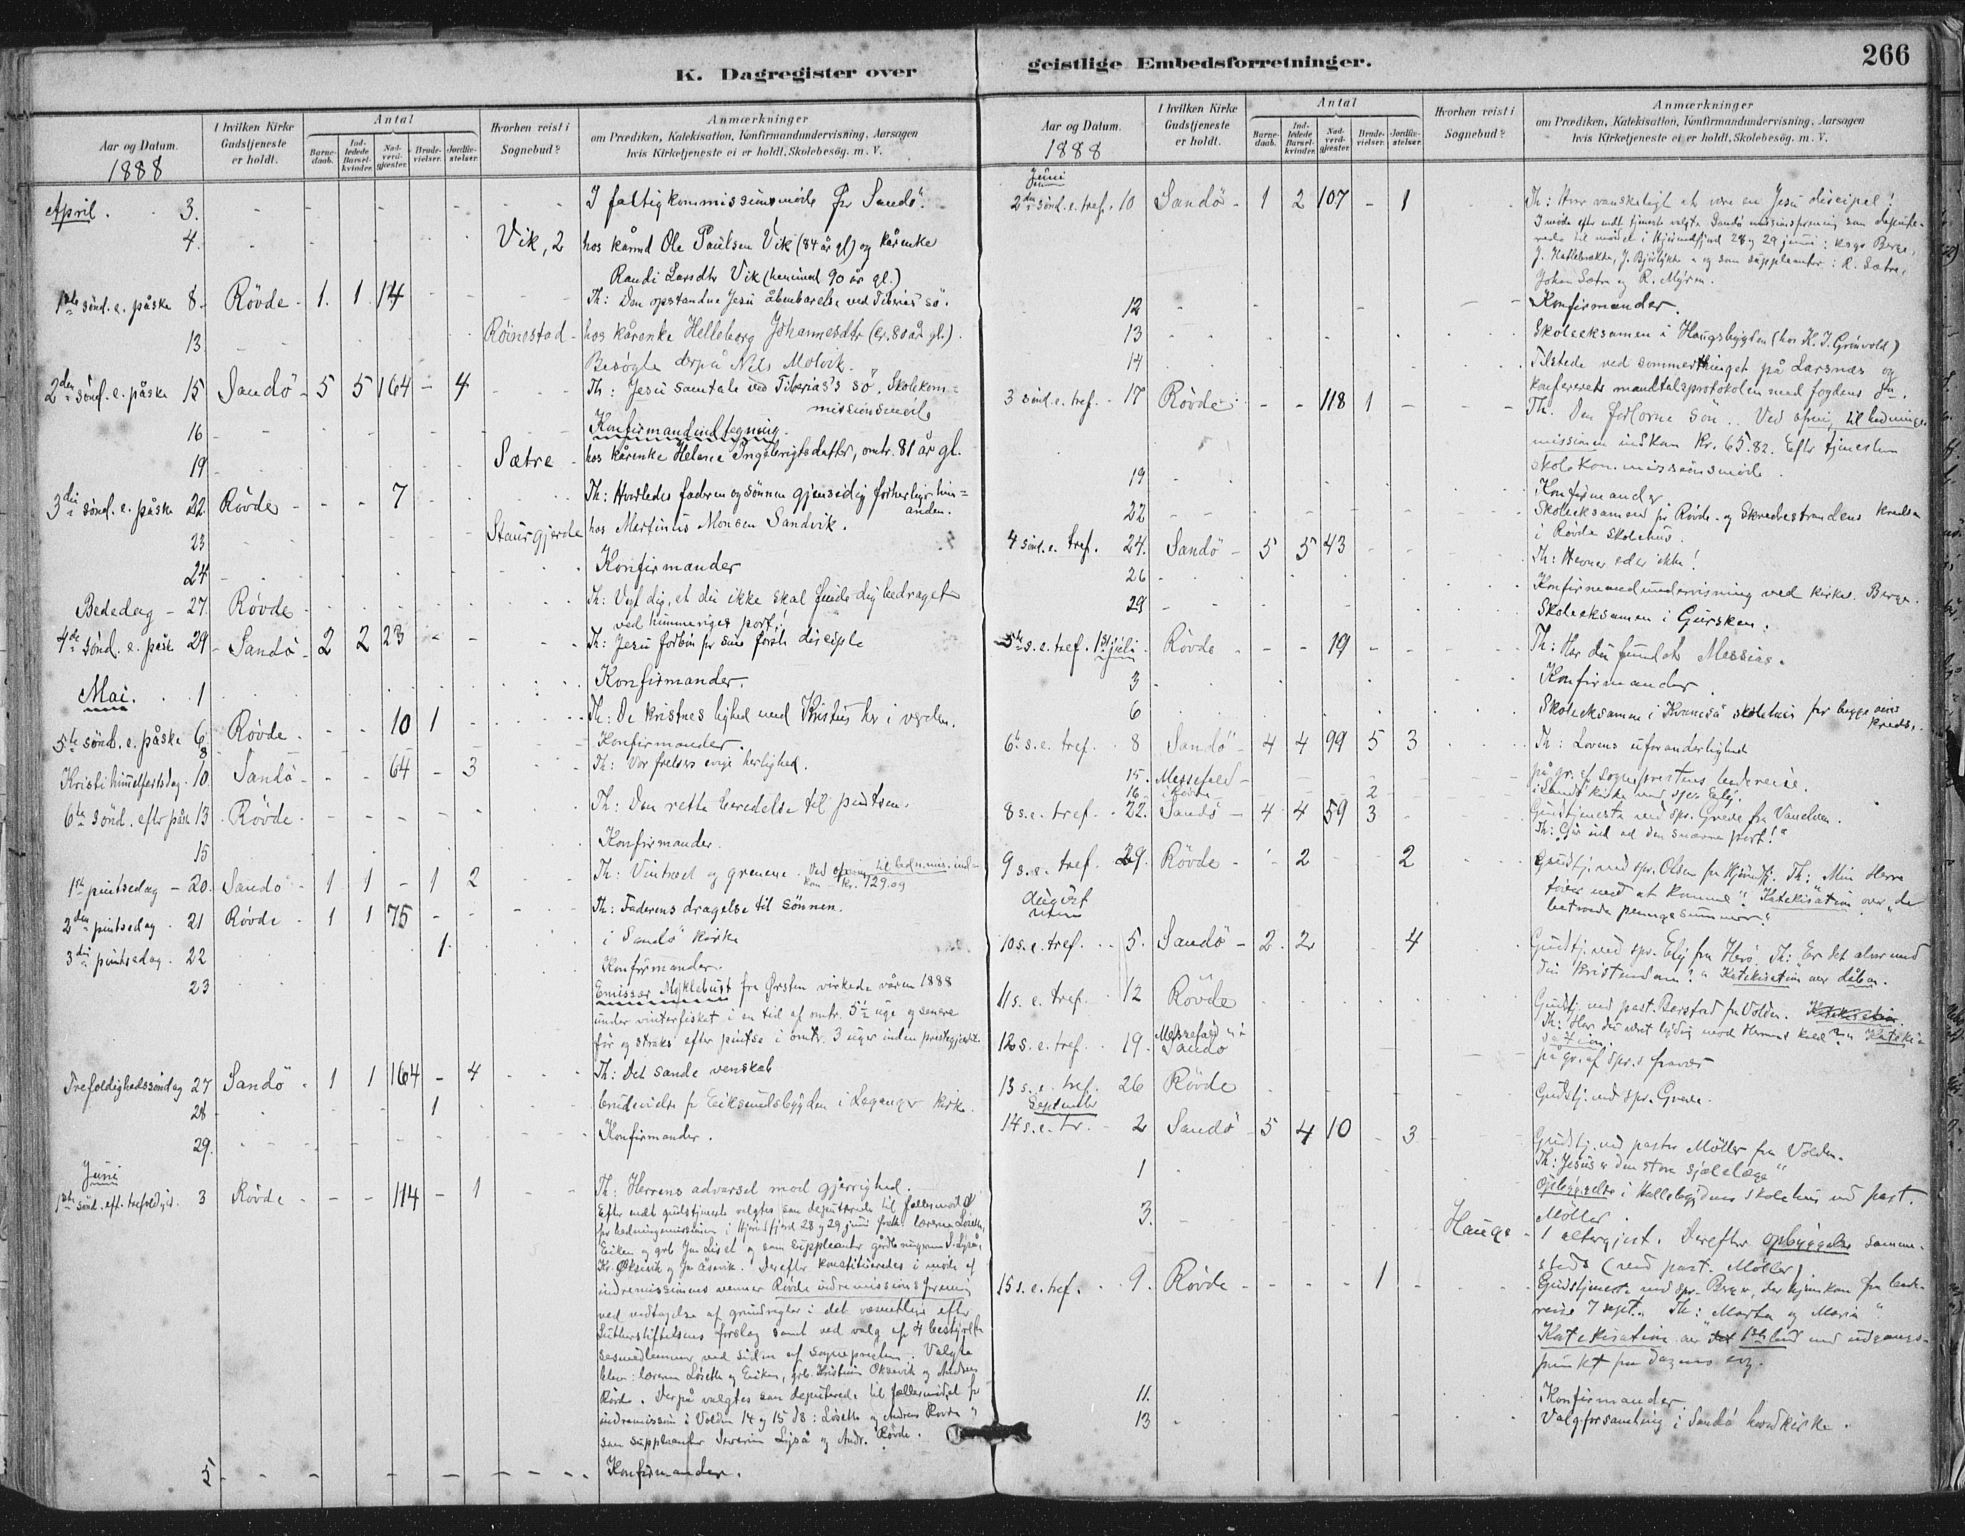 K. Dagregister over geistlige Embedsforretninger. 266
Aar og Datum. 1888
I hvilken Kirke Gudstjeneste er holdt.
Antal
Barnedaab. Indledede Barselkvinder. Nadverdgjester. Brudevielser. Jordfæstelser.
Hvorhen reist i Sognebud?
Anmærkninger
om Prædiken, Katekisation, Konfirmandundervisning, Aarsagen
hvis Kirketjeneste ei er holdt, Skolebesøg. m. V.
April. 3. I fattigkommissionsmøde for Sandö.
4. Vik, 2 hos kårmd Ole Paulsen Vik (84 år gl) og kårenke
Randi Larsdtr Vik (henimod 90 år gl.)
1ste sönd. e. påske 8. Rövde 1. 1 14 Th: Den opstandne Jesu åbenbarelse ved Tiberias sö.
13 Röinestad hos kårenke Helleborg Johannesdtr (ca. 80 år gl.).
Besøgte derpå Nils Molvik.
2den sönd. e. påske 15 Sandö 5 5 164 – 4 Th: Jesu samtale ved Tiberias's sö. Skolekom=
missionsmöde
16 Konfirmandindtegning.
19 Sætre hos kårenke Helene Ingebrigtsdatter, omtr. 81 år gl.
3die sönd. e. påske 22. Rövde 7 Th: Hvorledes faderen og sönnen gjensidig forherliger hin=
anden.
23 Staurgjerde hos Martinus Monsen Sandvik.
24 Konfirmander
Bededag – 27. Rövde Th: Vogt dig, at du ikke skal finde dig bedraget
ved himmeriges port!
4de sönd. e. påske 29 Sandö 2 2 23 Th: Jesu forbön for sine förste disciple
Mai. 1 Konfirmander.
5te sönd. e. påske 6 Rövde 10 1 Th: De kristnes lighed med Kristus her i verden.
8 Konfirmander.
Kristi himmelfartsdag. 10 Sandö 64 – 3 Th: Vor frelsers evige herlighed.
6te sönd. efter påske 13 Rövde Th: Den rette beredelse til pintsen.
15 Konfirmander.
1ste pintsedag – 20. Sandö 1 1 – 1 2 Th: Vintræet og grenene. Ved ofring til hedn.mis. ind=
kom kr. 129.09
2den pintsedag. 21 Rövde 1 1 75 Th: Faderens dragelse til sönnen.
3die pintsedag. 22 1 i Sandö kirke
23 Konfirmander.
Emissær Myklebust fra Ørsten virkede våren 1888
under vinterfisket i en tid af omtr. 5½ uge og senere
för og straks efter pintse i omtr. 3 uger inden prestegjeldet.
Trefoldighedssöndag 27 Sandö 1 1 164 – 4 Th: Det sande venskab
28 1 brudevielse fr Eiksundsbygden i Leganger kirke.
29. Konfirmander.
Juni
1ste sönd. eft. trefoldighd. 3 Rövde 114 – 1 Th: Herrens advarsel mod gjerrighed.
Efter endt gudstjeneste valgtes som deputerede til fællesmödet
for hedningemissionen i Hjörundfjord 28 og 29 juni fratr. lærerne Löseth,
Eiken og grb. Jon Liset og som suppleanter gårdbrugerne S. Lyså,
Kr. Øksevik og Jn Åsevik. Derefter konstitueredes i möde af
indremissionens venner Rövde indremissionsforening
ved vedtagelse af grundregler i det væsentlige efter
Lutherstiftelsens forslag samt ved valg af 4 bestyrel=
sesmedlemmer ved siden af sognepresten. Valgte
blev: lærerne Löseth og Eiken, grb. Kristian Oksevik og Andreas
Rövde. Derpå valgtes som deputerede til fællesmödet for
indremission i Volden 14 og 15 ds: Löseth og Andreas Rovde
som suppleanter Severin Lyså og Andr. Rövde.
5 Konfirmander.
Aar og Datum. 1888
I hvilken Kirke Gudstjeneste er holdt.
Antal
Barnedaab. Indledede Barselkvinder. Nadverdgjester. Brudevielser. Jordfæstelser.
Hvorhen reist i Sognebud?
Anmærkninger
om Prædiken, Katekisation, Konfirmandundervisning, Aarsagen
hvis Kirketjeneste ei er holdt, Skolebesög. m. V.
Juni
2den sönd. e. tref. 10 Sandö 1 2 107 – 1 Th: Hvor vanskeligt at være en Jesu discipel!
I möde efter endt tjeneste valgte Sandö missionsforening som depute=
rede til mödet i Hjörundfjord 28 og 29 juni: ksgr Berge,
J. Hallebrekke, J. Bjerlykke og som suppleanter: R. Sætre,
Johan Sætre og R. Myren.
12 Konfirmander.
13 Skoleeksamen i Haugsbygden (hos K. J. Grönvold)
14 Tilstede ved sommerthinget på Larsnæs og
konfererede mandtalsprotokolen med fogdens
3 sönd. e. tref. 17 Rövde 118 1 Th. Den forlorne sön. Ved ofring til hedninge
missionen indkom kr. 65.82. Efter tjenesten
skolekommissionsmöde.
19 Konfirmander.
22 Skoleeksamen for Rövde- og Skredestrandens kredse
i Rövde skolehus.
4 sönd. e. tref. 24. Sandö 5 5 43 Th: Hevner eder ikke!
26 Konfirmandundervisning ved kirkes. Berge.
29 Skoleeksamen i Gursken.
5te s. e. tref. 1ste juli Rövde 19 Th: Har du fundet Messias.
3 Konfirmander.
6 Skoleeksamen i Kvamsö skolehus for begge kredse.
6te s. e. tref. 8 Sandö 4 4 99 5 3 Th: Lovens uforanderlighed
15. Messefald på gr. af sogneprestens badereise.
16 2 i Sandö kirke ved spr. Eeg.
8 s. e. tref. 22. Sandö 4 4 59 3 Gudstjeneste ved spr. Grede fra Vanelven.
Th: Går ind ad den snævre port!"
9 s. e. tref. 29. Rövde 2 2 Gudstj. ved spr. Olsen fra Hjörundfj. Th: Min Herre
töver med at komme". Katekisation over "de
betroede pengesummer".
August
10 s. e. tref. 5. Sandö 2 2 4 Gudstj. ved spr. Eeg fra Herö. Th: Er det alvor med
din kristendom?" Katekisation over dåben.
11 s. e. tref. 12 Rövde Gudstj. ved past. Barstad fra Volden.
Th: Har du været lydig mod Herrens kald?" Kateki=
sation.
12 s. e. tref. 19. Messefald i Sandö på gr. af spr.s fravær
13 s. e. tref. 26 Rövde Gudstj. ved spr. Grede.
September
14 s. e. tr. 2 Sandö 5 4 10 – 3 Gudstj. ved pastor Möller fra Volden.
Th: Jesus er den store sjælelæge"
1 Opbyggelse i Hallebygdens skolehus ved past.
Möller.
3. Hauge 1 altergjest. Derefter opbyggelse samme=
steds (ved past. Möller)
15 s. e. tref. 9. Rövde 1 Gudstjeneste ved spr. Berge, der hjemkom fra bade=
reise 7 sept. Th: "Martha og Maria".
Katekisation over 1ste bud med udgangs=
punkt fra dagens evg.
11. Konfirmander.
13 Valgforsamling i Sandö hovedkirke.